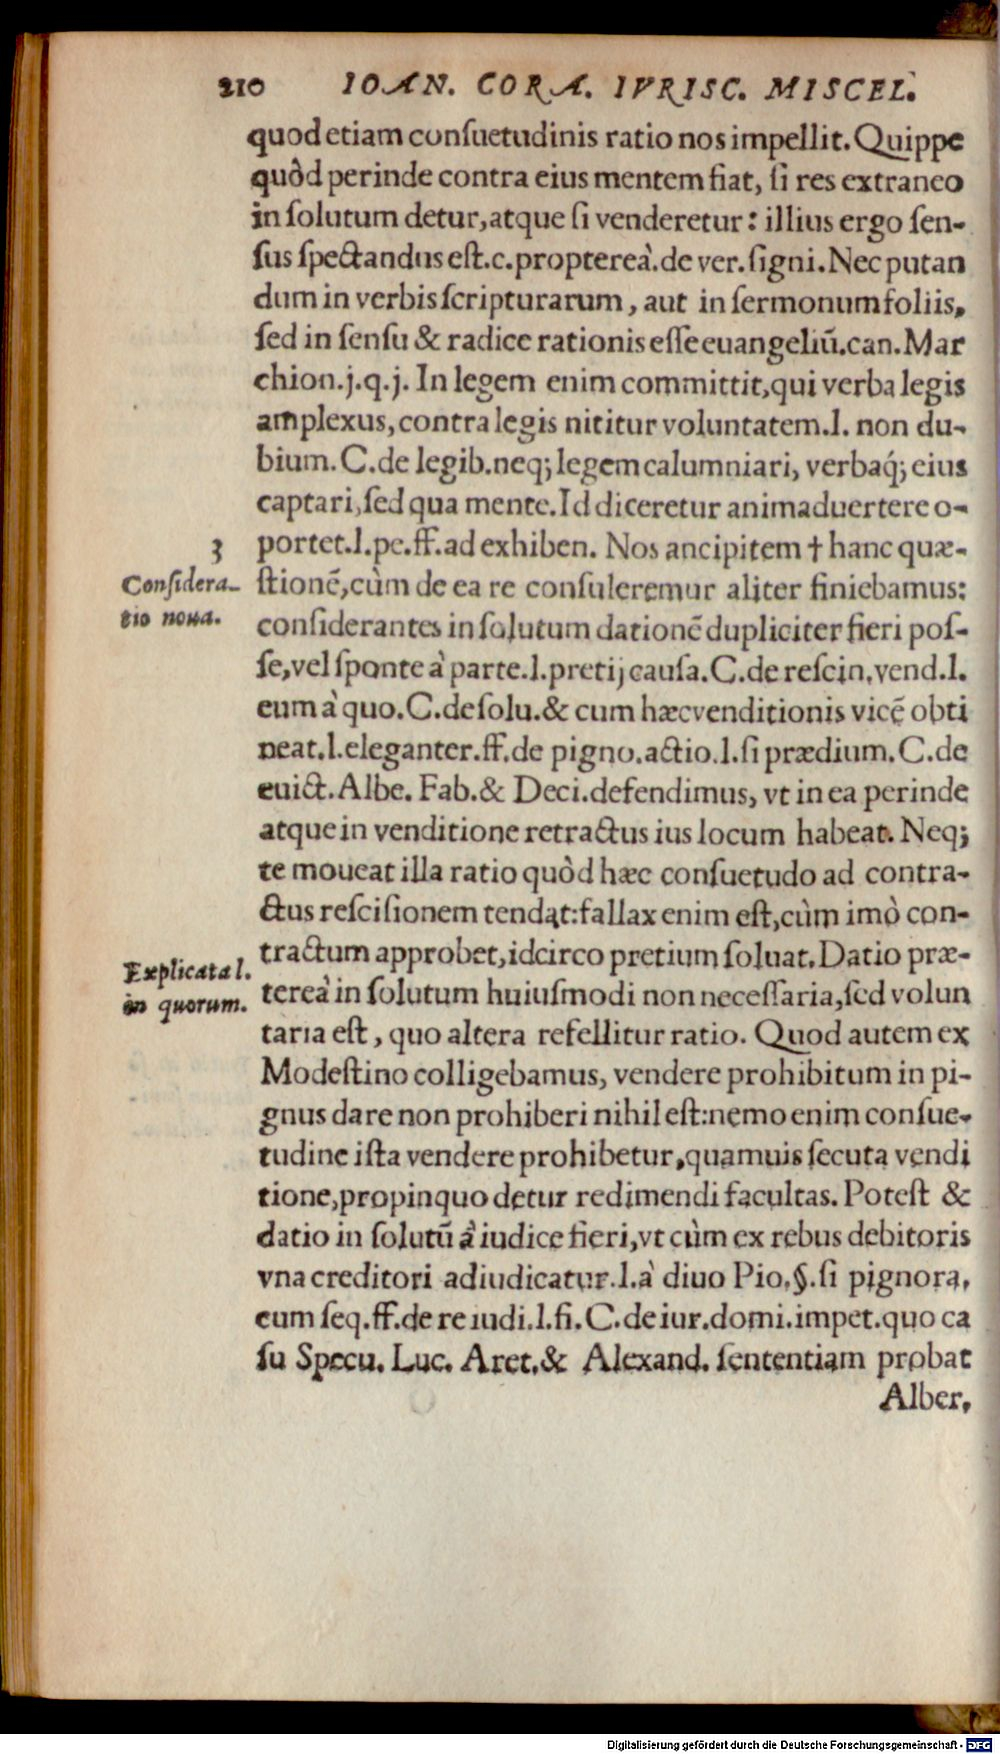 210 IOAN. CORA. IVRISC. MISCEL.
quod etiam consuetudinis ratio nos impellit. Quippe
quòd perinde contra eius mentem fiat, si res extraneo
in solutum detur, atque si venderetur: illius ergo sen-
sus spectandus est.c.propterea.de ver.signi. Nec putan
dum in verbis scripturarum, aut in sermonum foliis,
sed in sensu & radice rationis esse euangeliū.can.Mar
chion.j.q.j. In legem enim committit, qui verba legis
amplexus, contra legis nititur voluntatem.l. non du-
bium. C.de legib.neq; legem calumniari, verbaq́; eius
captari, sed qua mente. Id diceretur animaduertere o-
3
portet.l.pe.ff.ad exhiben. Nos ancipitem † hanc quæ-
Considera-
stionē, cùm de ea re consuleremur aliter finiebamus:
tio noua.
considerantes in solutum dationē dupliciter fieri pos-
se, vel sponte à parte.l.pretij causa. C.de rescin.vend.l.
eum à quo. C.de solu.& cum hæc venditionis vicē obti
neat.l.eleganter.ff.de pigno.actio.l.si prædium. C.de
euict. Albe. Fab.& Deci.defendimus, vt in ea perinde
atque in venditione retractus ius locum habeat. Neq;
te moueat illa ratio quòd hæc consuetudo ad contra-
ctus rescisionem tendat: fallax enim est, cùm imò con-
tractum approbet, idcirco pretium soluat. Datio præ-
Explicata l.
tereà in solutum huiusmodi non necessaria, sed volun
in quorum.
taria est, quo altera refellitur ratio. Quod autem ex
Modestino colligebamus, vendere prohibitum in pi-
gnus dare non prohiberi nihil est: nemo enim consue-
tudine ista vendere prohibetur, quamuis secuta vendi
tione, propinquo detur redimendi facultas. Potest &
datio in solutū à iudice fieri, vt cùm ex rebus debitoris
vna creditori adiudicatur.l.à diuo Pio.§.si pignora,
cum seq.ff.de re iudi.l.fi. C.de iur.domi.impet.quo ca
su Specu. Luc. Aret.& Alexand. sententiam probat
Alber.
Digitalisierung gefördert durch die Deutsche Forschungsgemeinschaft - DFG